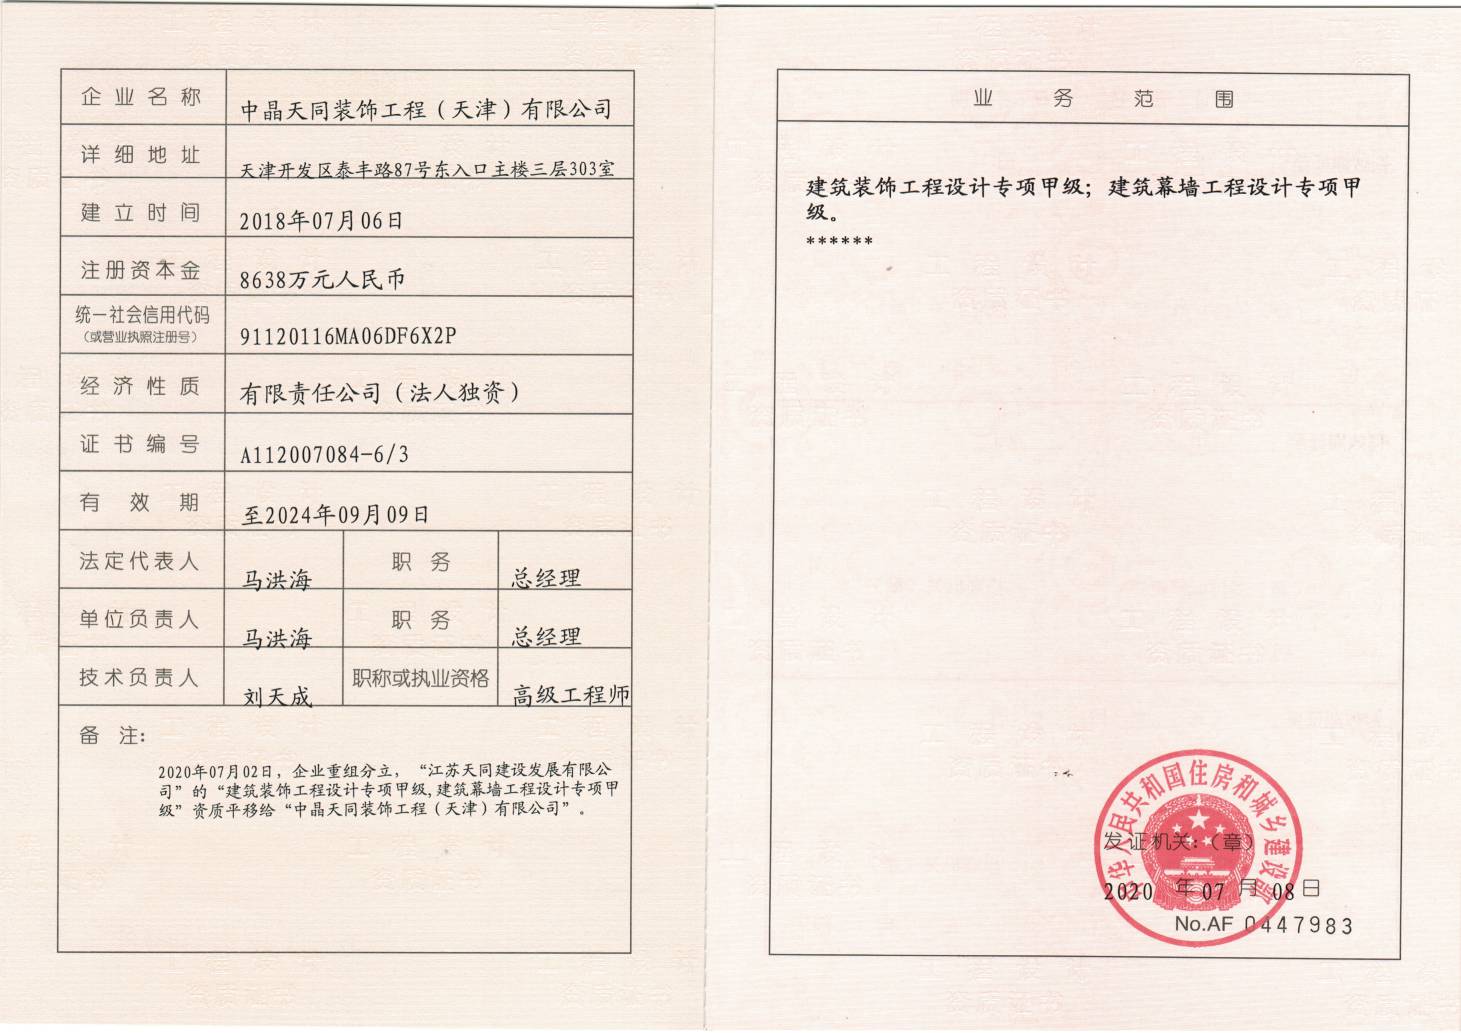 企业名称 中晶天同装饰工程（天津）有限公司
详细地址 天津开发区泰丰路87号东入口主楼三层303室
建立时间 2018年07月06日
注册资本金 8638万元人民币
统一社会信用代码
（或营业执照注册号） 91120116MA06DF6X2P
经济性质 有限责任公司（法人独资）
证书编号 A112007084-6/3
有效期 至2024年09月09日
法定代表人 马洪海 职务 总经理
单位负责人 马洪海 职务 总经理
技术负责人 刘天成 职称或执业资格 高级工程师
备注:
2020年07月02日，企业重组分立，“江苏天同建设发展有限公
司”的“建筑装饰工程设计专项甲级,建筑幕墙工程设计专项甲
级”资质平移给“中晶天同装饰工程（天津）有限公司”。
业务范围
建筑装饰工程设计专项甲级；建筑幕墙工程设计专项甲
级。
******
中华人民共和国住房和城乡建设部
发证机关:（章）
2020年07月08日
No.AF 0447983